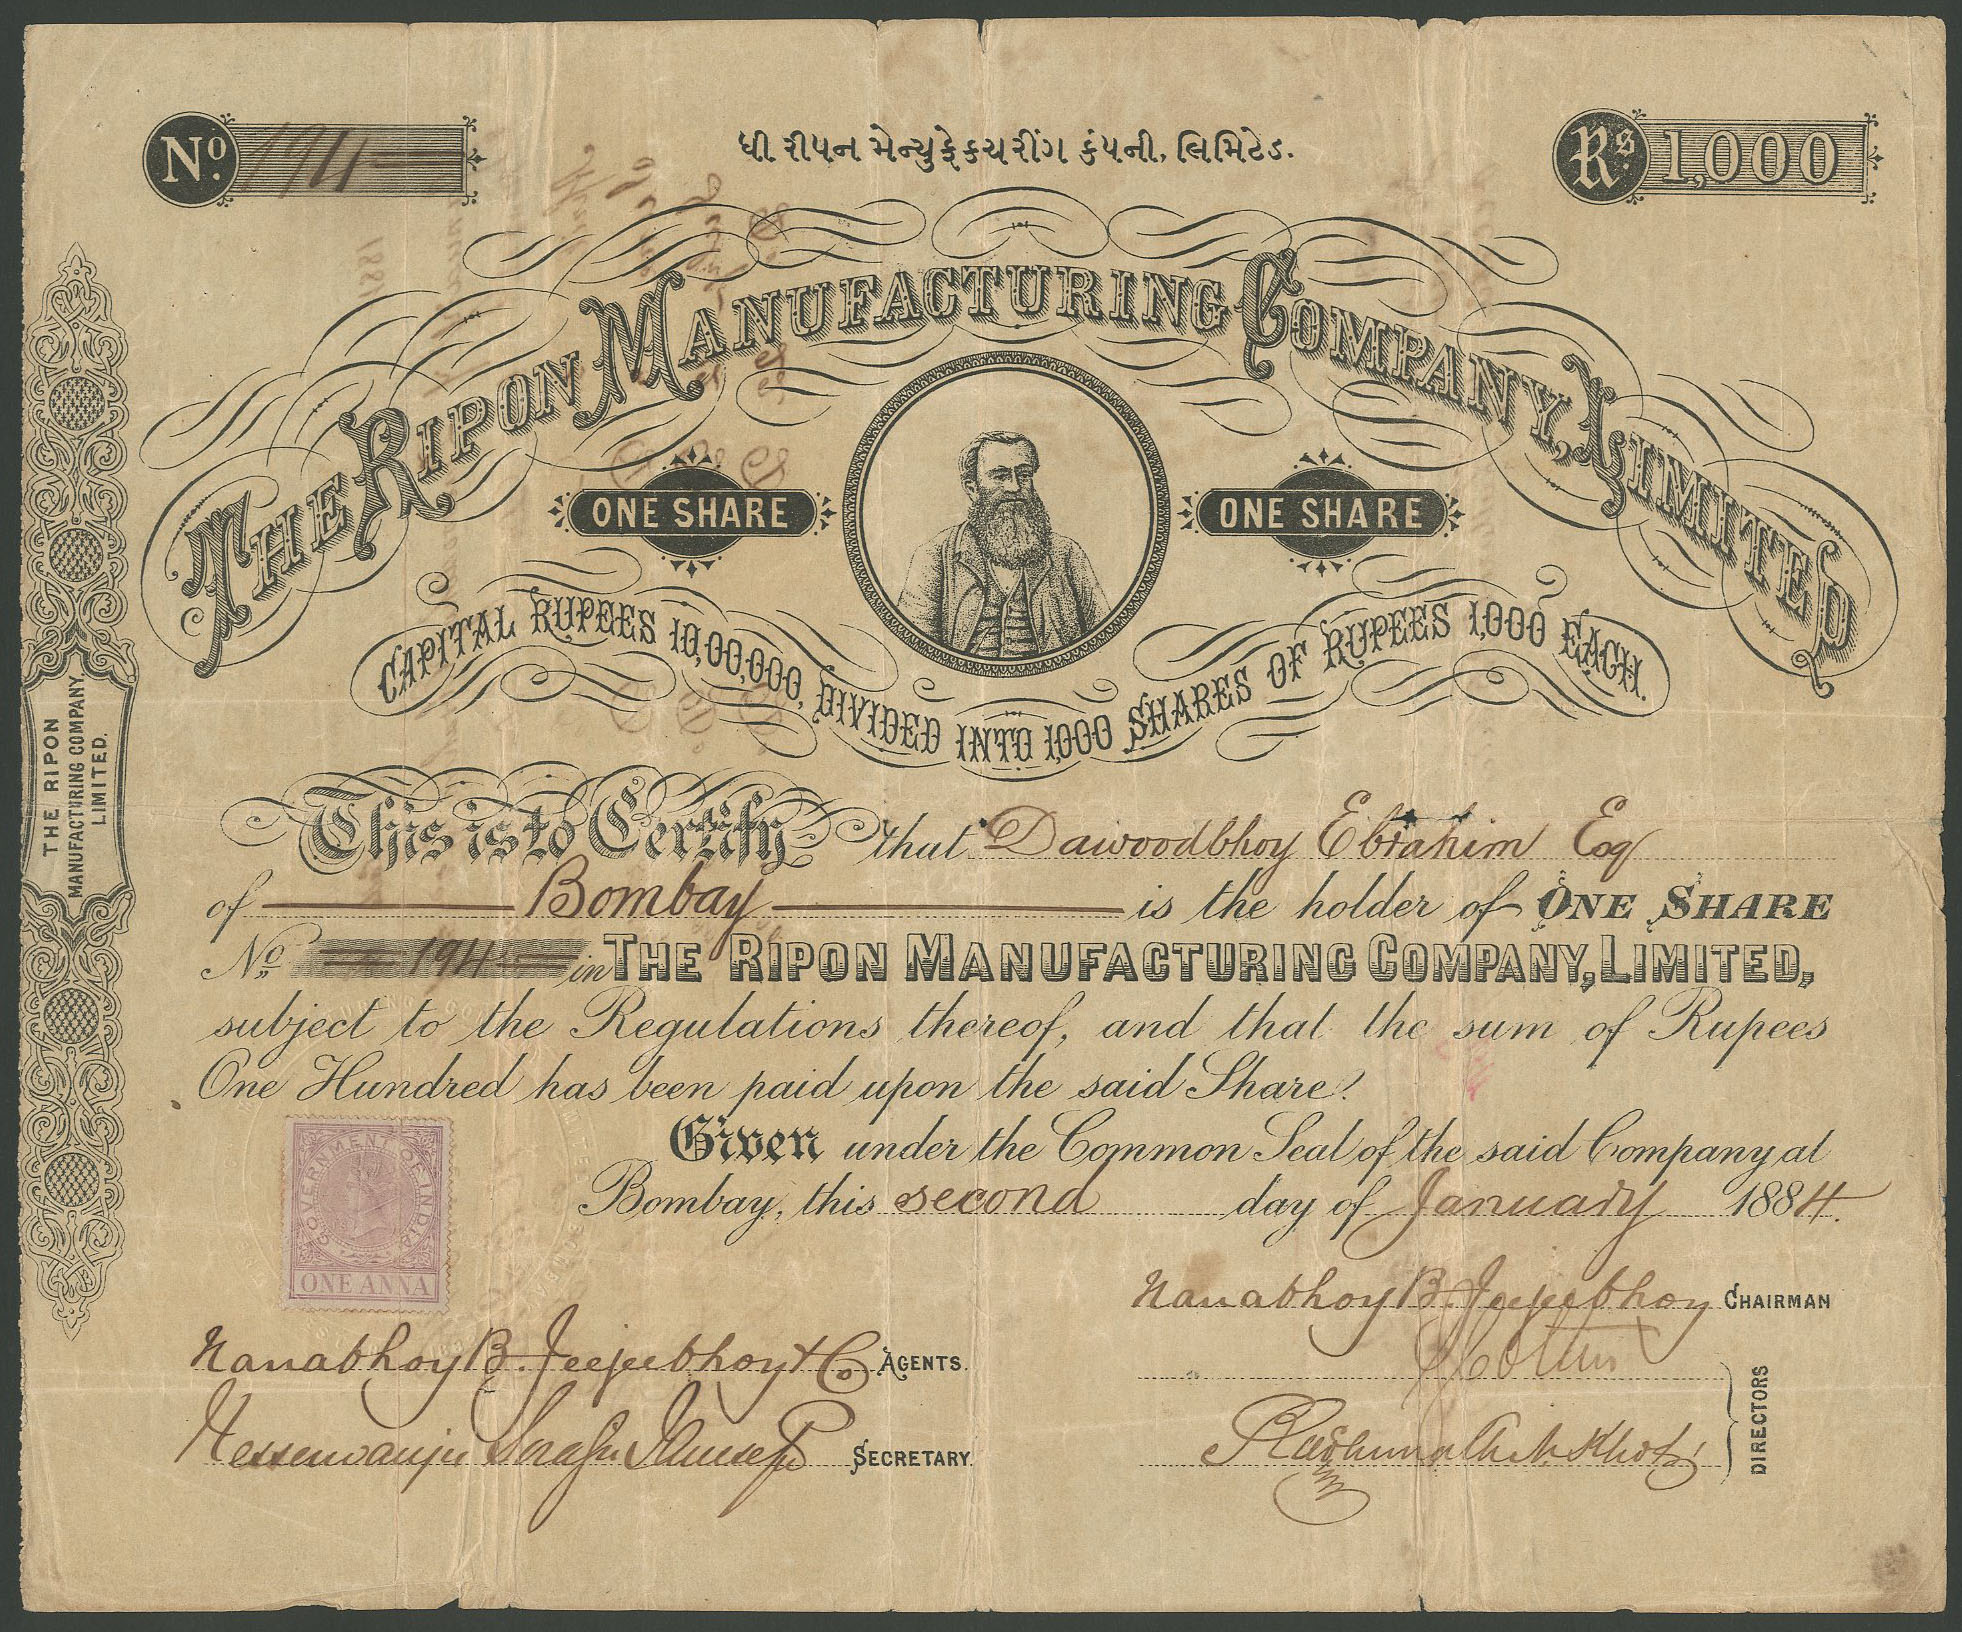 No. 1911
ધી રીપન મેન્યુફેકચરીંગ કંપની, લિમિટેડ.
Rs 1,000
THE RIPON MANUFACTURING COMPANY, LIMITED
ONE SHARE
ONE SHARE
CAPITAL RUPEES 10,00,000, DIVIDED INTO 1,000 SHARES OF RUPEES 1,000 EACH.
THE RIPON
MANUFACTURING COMPANY,
LIMITED.
This is to Certify that Dawoodbhoy Ebrahim Esq
of Bombay is the holder of ONE SHARE
No. in THE RIPON MANUFACTURING COMPANY, LIMITED,
subject to the Regulations thereof, and that the sum of Rupees
One Hundred has been paid upon the said Share.
Given under the Common Seal of the said Company at
Bombay, this second day of January 1884.
GOVERNMENT OF INDIA
ONE ANNA
Nanabhoy B. Jeejeebhoy CHAIRMAN
Nanabhoy B. Jeejeebhoy & Co AGENTS.
DIRECTORS
SECRETARY.